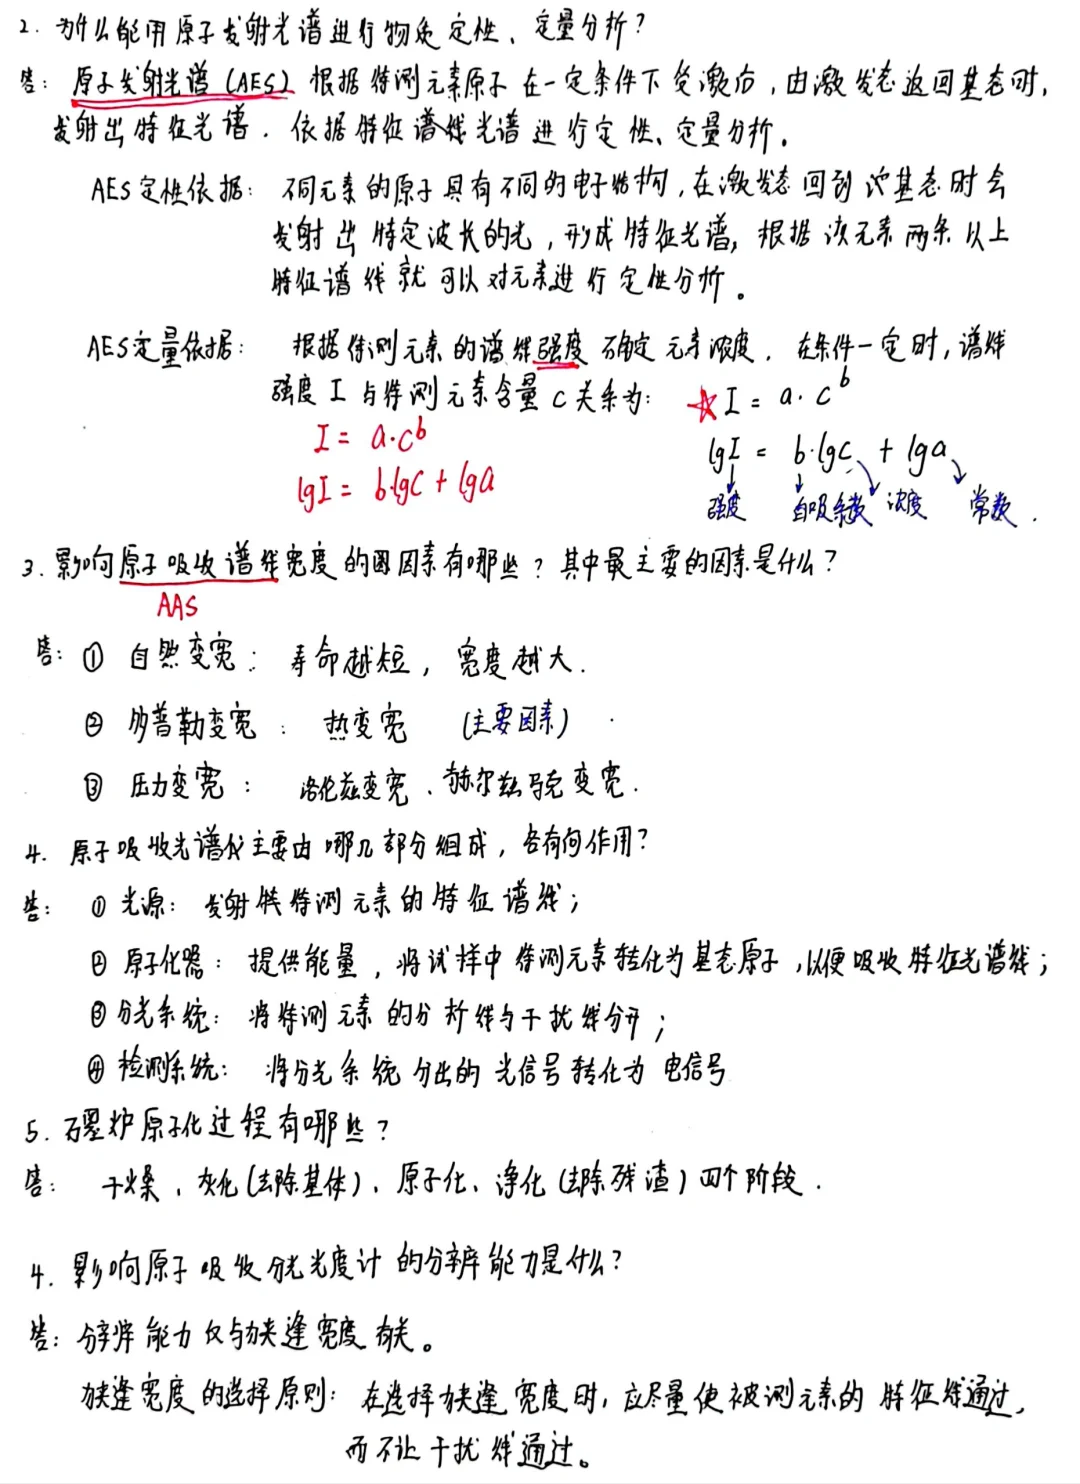 2. 为什么能用原子发射光谱进行物质定性、定量分析？
答: 原子发射光谱(AES) 根据待测元素原子在一定条件下受激后,由激发态返回基态时,
发射出特征光谱.依据特征谱线光谱进行定性、定量分析。
AES定性依据: 不同元素的原子具有不同的电子结构,在激发态回到基态时会
发射出特定波长的光,形成特征光谱,根据该元素两条以上
特征谱线就可以对元素进行定性分析。
AES定量依据: 根据待测元素的谱线强度确定元素浓度.在条件一定时,谱线
强度 I 与待测元素含量 c 关系为: ☆ I = a·c^b
I = a·c^b
lgI = b·lgc + lga
lgI = b·lgC + lga
强度 自吸系数 浓度 常数.
3. 影响原子吸收谱线宽度的因素有哪些?其中最主要的因素是什么?
AAS
答: ① 自然变宽: 寿命越短, 宽度越大.
② 多普勒变宽: 热变宽 (主要因素)
③ 压力变宽: 洛伦兹变宽、赫尔兹马克变宽.
4. 原子吸收光谱仪主要由哪几部分组成,各有何作用?
答: ① 光源: 发射待测元素的特征谱线;
② 原子化器: 提供能量,将试样中待测元素转化为基态原子,以便吸收特征光谱线;
③ 分光系统: 将待测元素的分析线与干扰线分开;
④ 检测系统: 将分光系统分出的光信号转化为电信号
5. 石墨炉原子化过程有哪些?
答: 干燥、灰化(去除基体)、原子化、净化(去除残渣)四个阶段.
4. 影响原子吸收分光光度计的分辨能力是什么?
答: 分辨能力仅与狭逢宽度有关。
狭逢宽度的选择原则: 在选择狭逢宽度时,应尽量使被测元素的特征线通过,
而不让干扰线通过。